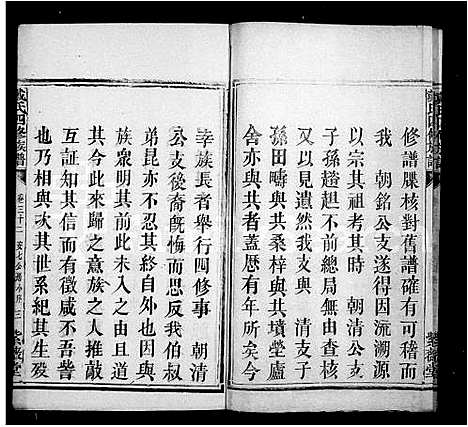 修譜牒核對舊譜確有可據
我　朝銘公支譜因流溯源
以宗其祖考其時　朝清公支
子孫趦趄不前前局由查核
又以見遺然我支與　清支子
孫田疇與共桑梓與共墳塋廬
舍亦與共者蓋歷有年所矣今
幸族長者舉行四修事　朝清
公支後裔旣悔而思反我伯叔
弟昆亦不忍其終自外也因與
族衆明其前此未入之由而嘉
其今此來歸之意族之人推敲
互証知其信而有徵咸不吾訾
也乃相與次其世系紀其生殁
戴氏四修族譜　卷三十二　三